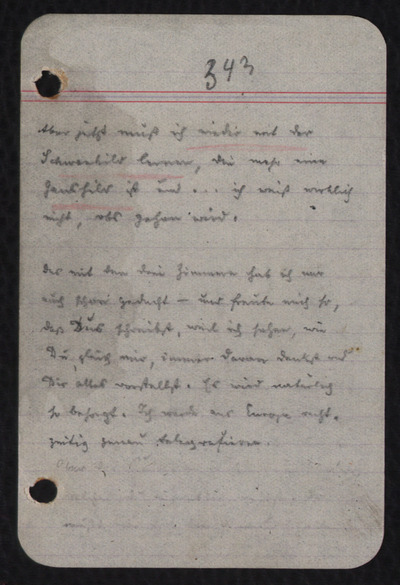 343
Aber jetzt muß ich wieder mit der
lernen, die mehr eine
ist und ... ich weiß wirklich
nicht, obs gehen wird.
Das mit den drei Zimmern hat ich mir
auch schon gedacht – und freute mich so,
daß Dus schreibst, weil ich sehe, wie
Du, gleich mir, immer daran denkst und
Dir alles vorstellst. Es wird natürlich
so besorgt. Ich werde aus Europa recht-
zeitig genau telegrafieren.